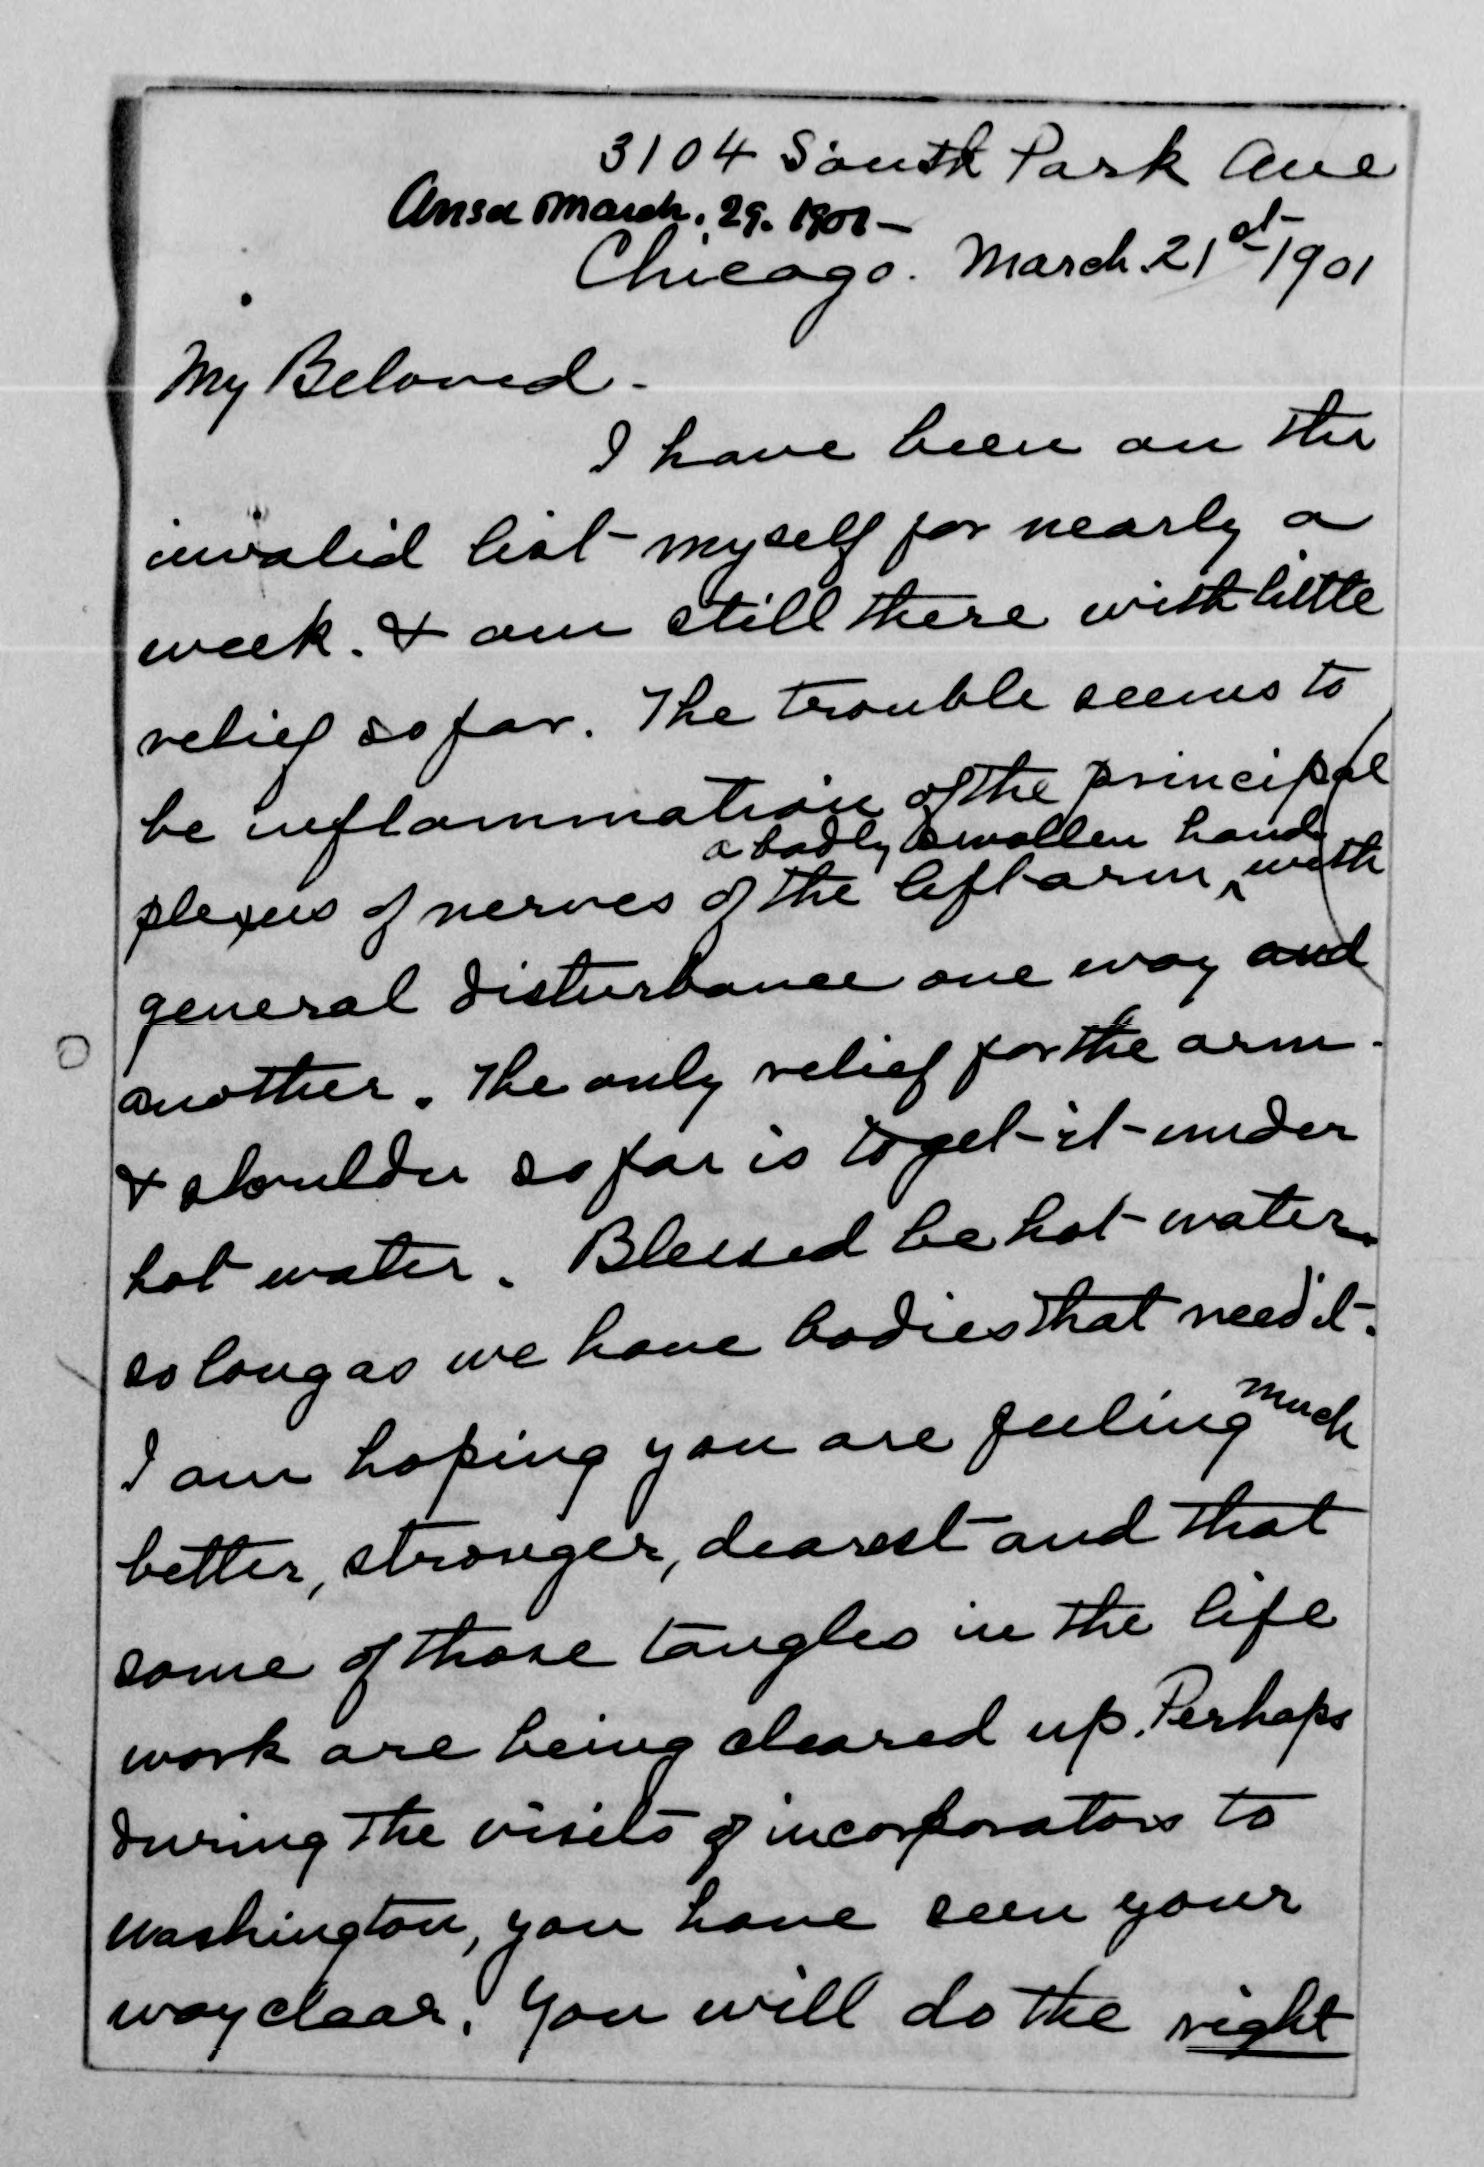 3104 South Park Ave
Ansd March. 29. 1901 -
Chicago. March. 21st 1901
My Beloved -
I have been on the
invalid list myself for nearly a
week. & am still there with little
relief so far. The trouble seems to
be inflammation of the principal
a badly swollen hand
plexus of nerves of the left arm ^ with
general disturbance one way and
another. The only relief for the arm -
& shoulder so far is to get it under
hot water. Blessed be hot water.
so long as we have bodies that need it -
I am hoping you are feeling much
better, stronger, dearest and that
some of those tangles in the life
work are being cleared up. Perhaps
during the visits of incorporators to
Washington, you have seen your
way clear. You will do the right